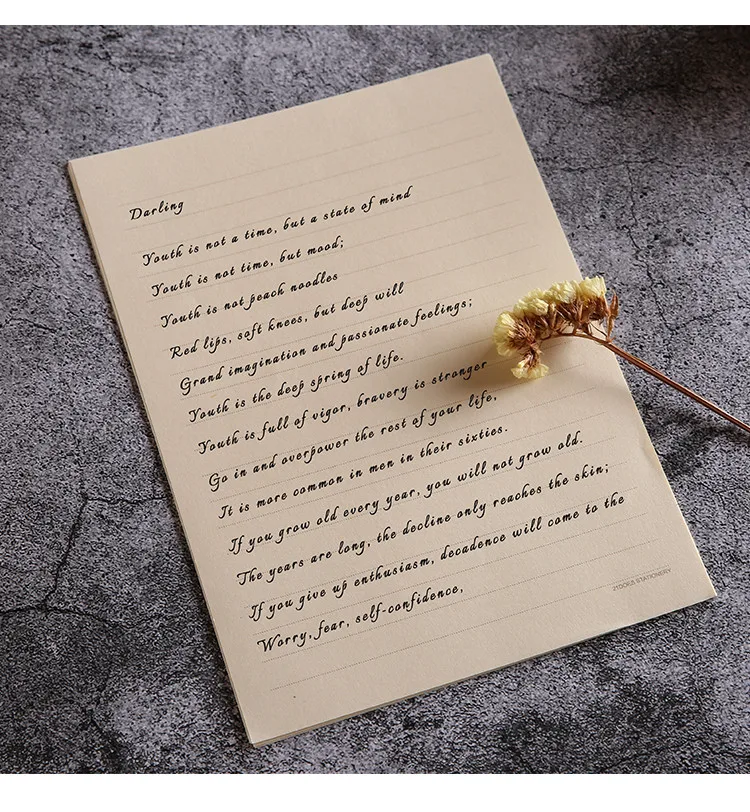 Darling
Youth is not a time, but a state of mind
Youth is not time, but mood;
Youth is not peach noodles
Red lips, soft knees, but deep will
Grand imagination and passionate feelings;
Youth is the deep spring of life.
Youth is full of vigor, bravery is stronger
Go in and overpower the rest of your life,
It is more common in men in their sixties.
If you grow old every year, you will not grow old.
The years are long, the decline only reaches the skin;
If you give up enthusiasm, decadence will come to the
Worry, fear, self-confidence,
21DOES STATIONERY